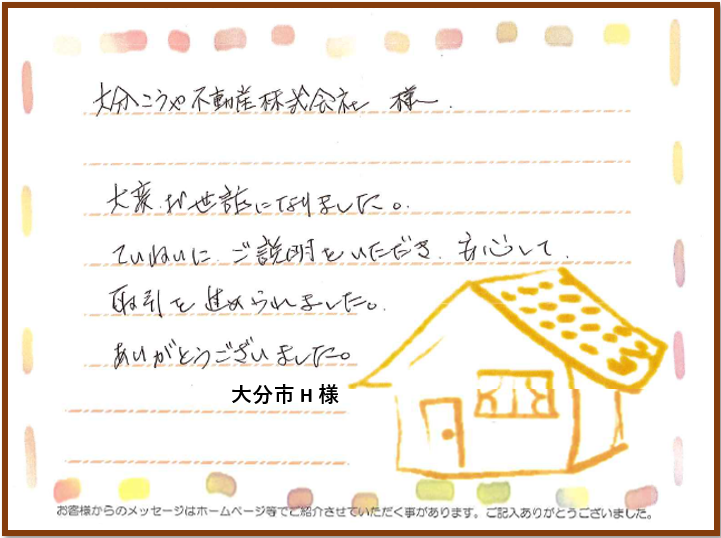 大分こうや不動産株式会社 様
大変お世話になりました。
ていねいに ご説明をいただき、安心して
取引を進められました。
ありがとうございました。
大分市 H 様
お客様からのメッセージはホームページ等でご紹介させていただく事があります。ご記入ありがとうございました。